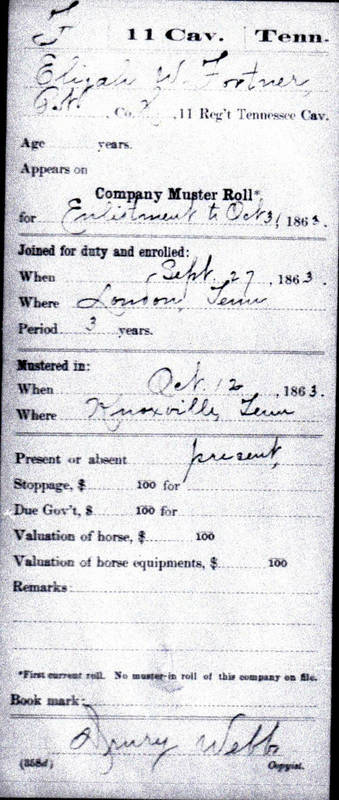 F 11 Cav. Tenn.
Elijah W. Fortner,
Pvt, Co. , 11 Reg't Tennessee Cav.
Age years.
Appears on
Company Muster Roll*
for Enlistment to Oct 31, 1863.
Joined for duty and enrolled:
When Sept. 27, 1863.
Where Loudon, Tenn
Period 3 years.
Mustered in:
When Oct. 12, 1863.
Where Knoxville, Tenn
Present or absent present,
Stoppage, $ 100 for
Due Gov't, $ 100 for
Valuation of horse, $ 100
Valuation of horse equipments, $ 100
Remarks:
*First current roll. No muster-in roll of this company on file.
Book mark:
Drury Webb
(358d) Copyist.